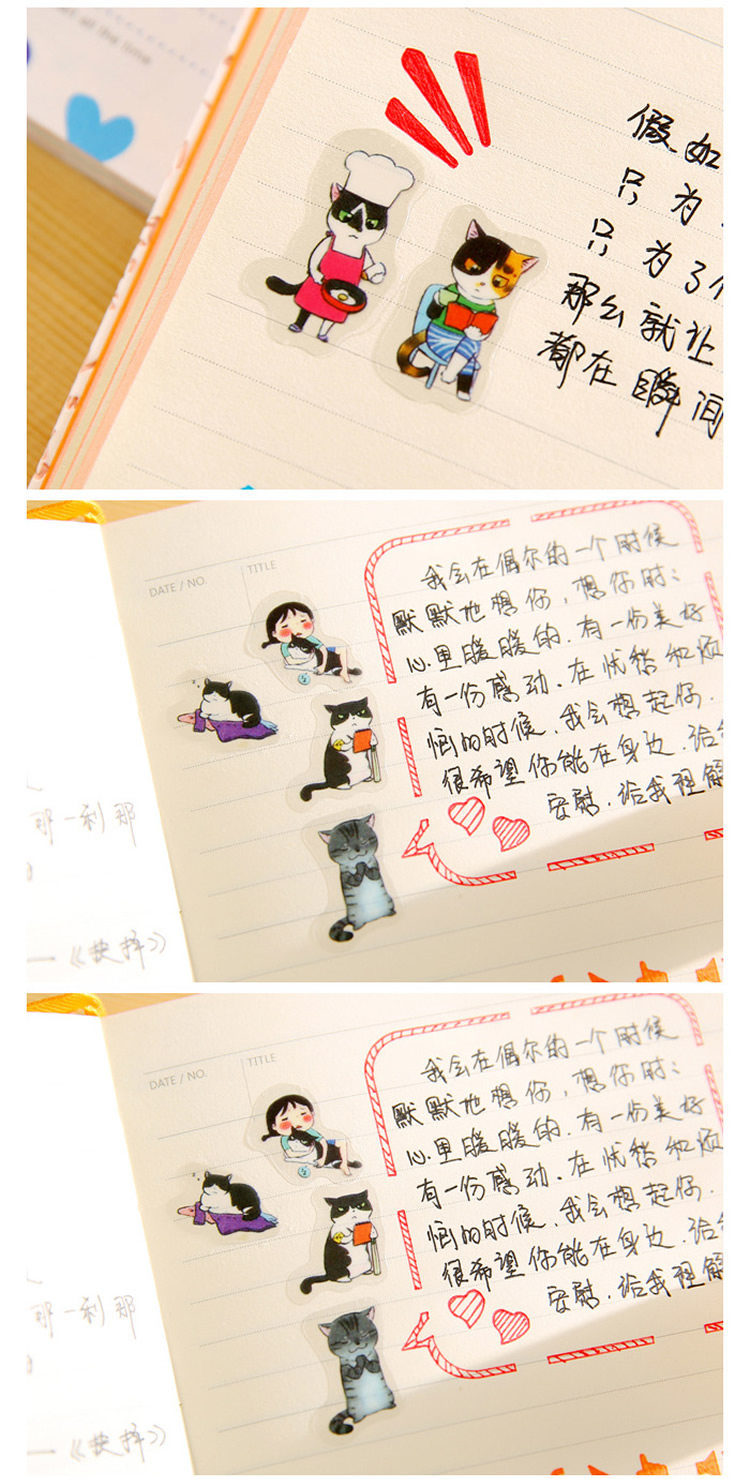 all the time
假如
只为
只为了个
那么就让
都在瞬间
DATE / NO.
TITLE
我会在偶尔的一个时候
默默地想你，想你时：
心里暖暖的．有一份美好
有一份感动．在忧愁和烦
恼的时候，我会想起你．
很希望你能在身边．给
安慰，给我理解
那一刹那
——《抉择》
DATE / NO.
TITLE
我会在偶尔的一个时候
默默地想你，想你时：
心里暖暖的．有一份美好
有一份感动．在忧愁和烦
恼的时候，我会想起你．
很希望你能在身边．给
安慰，给我理解
那一刹那
——《抉择》